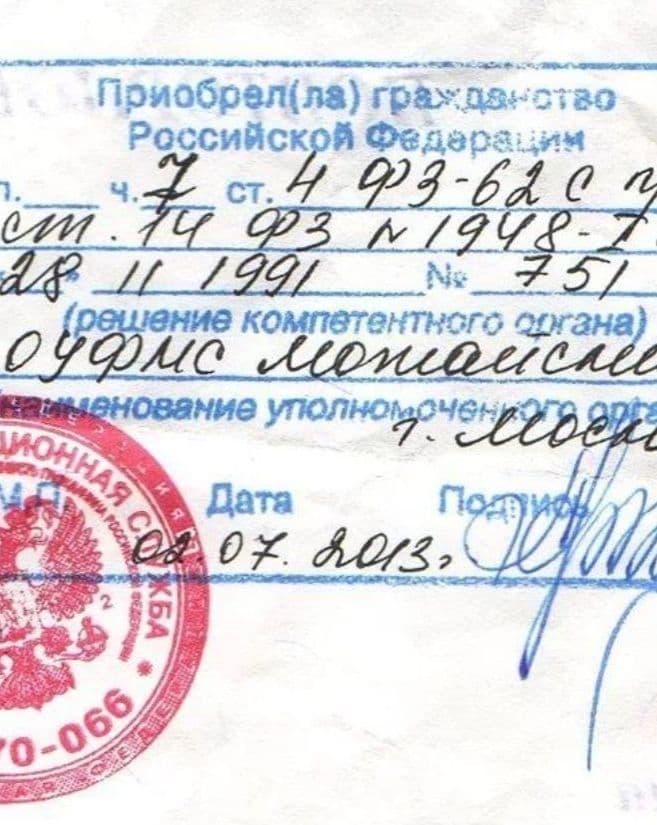 Приобрел(ла) гражданство
Российской Федерации
п. ч. 7 ст. 4 ФЗ-62 с у
ст. 14 ФЗ № 1948-I
28 " 11 1991 № 751
(решение компетентного органа)
ОУФМС Можайски
(наименование уполномоченного орга
г. Моск
М.П. Дата Подпись
02.07.2013г
ЦИОННАЯ СЛУЖБА *
РОССИЙСКОЙ ФЕДЕРАЦИИ
2
70-066